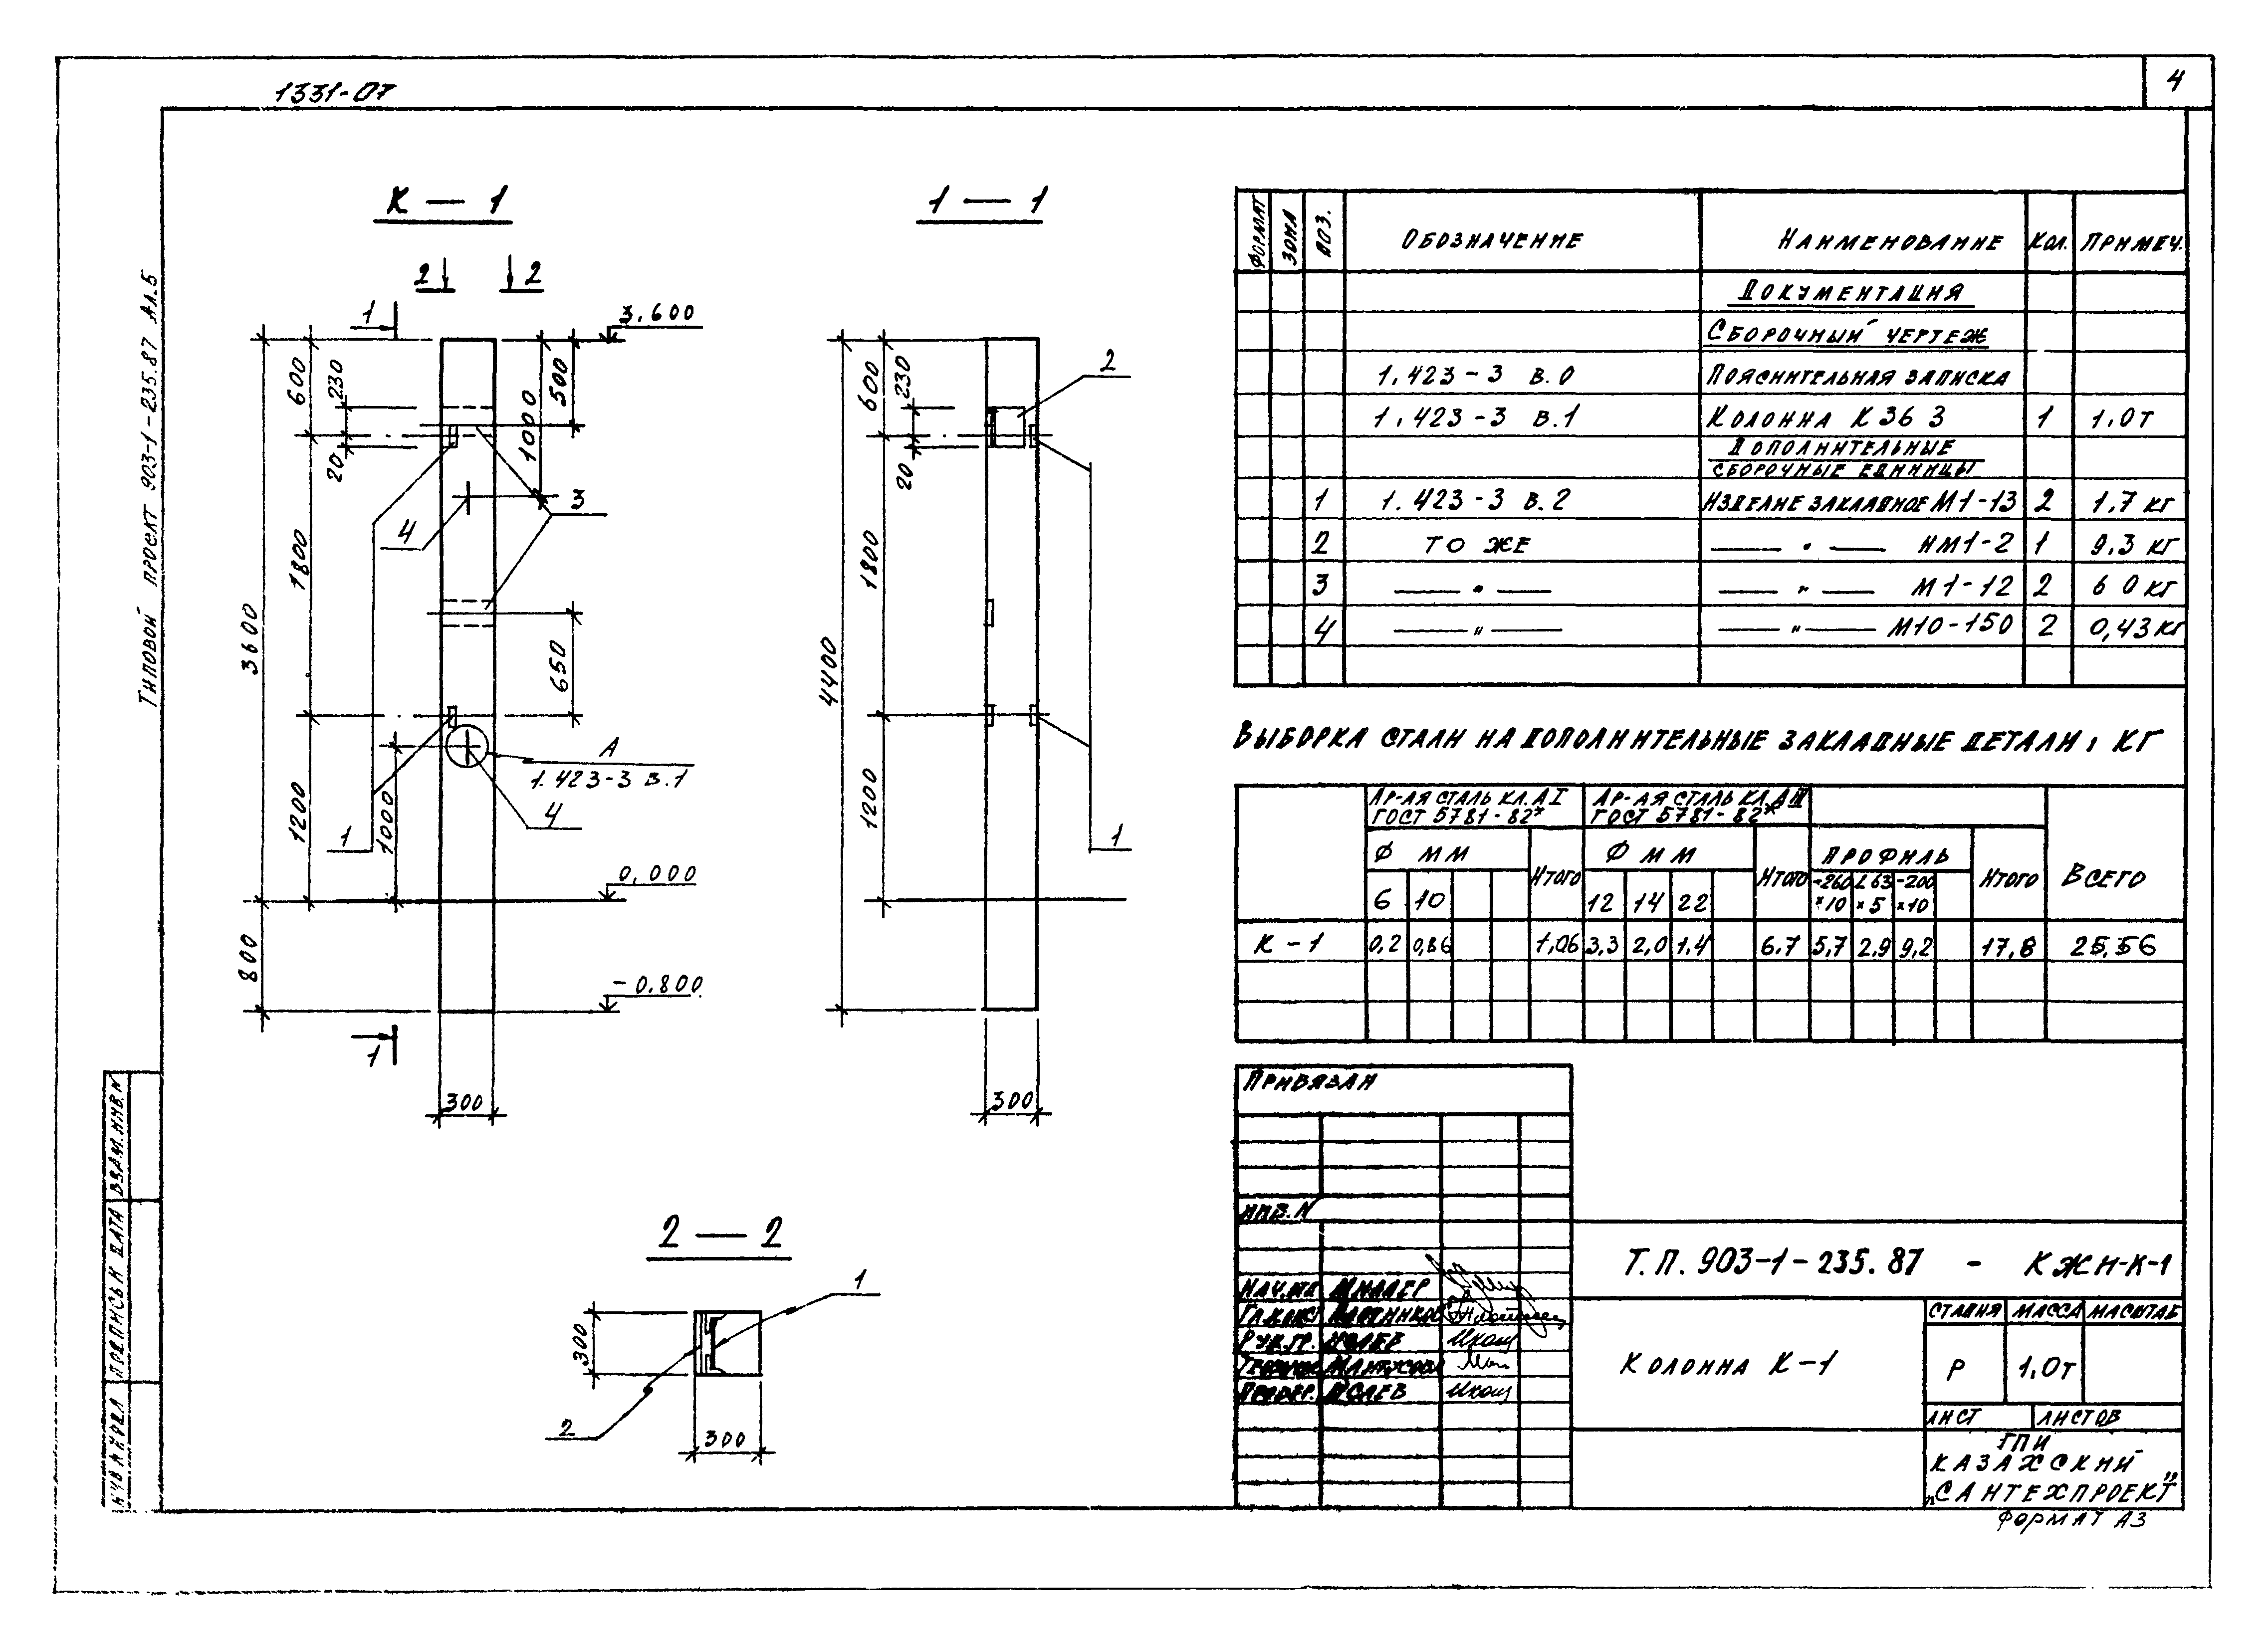 1331-07
4
Типовой проект 903-1-235.87 Ал.5
К — 1
1 — 1
2 2
1
3.600
600
230
20
500
1000
3
4
1800
3600
650
А
1.423-3 в.1
4
1
1200
1000
0,000
800
-0.800
1
300
600
230
20
2
1800
4400
1200
1
300
2 — 2
1
2
300
300
Формат Зона Поз. Обозначение Наименование Кол. Примеч.
Документация
Сборочный чертеж
1.423-3 в.0 Пояснительная записка
1.423-3 в.1 Колонна К 36 3 1 1,0т
Дополнительные
сборочные единицы
1 1.423-3 в.2 Изделие закладное М1-13 2 1.7 кг
2 то же — " — НМ1-2 1 9.3 кг
3 — " — — " — М1-12 2 6 0 кг
4 — " — — " — М10-150 2 0,43 кг
Выборка стали на дополнительные закладные детали, кг
Ар-ая сталь кл. АI Ар-ая сталь кл. АIII
ГОСТ 5781-82* ГОСТ 5781-82*
Ф мм Итого Ф мм Итого Профиль Итого Всего
6 10 12 14 22 -260×10 L63×5 -200×10
К-1 0,2 0,86 1,06 3,3 2,0 1,4 6.7 5,7 2,9 9,2 17,8 25,56
Привязан
Инв.N
Т.П. 903-1-235.87 - КЖИ-К-1
Нач.
Рук.гр. Исаев
Провер. Исаев
Колонна К-1
Стадия Масса Масштаб
Р 1,0т
Лист Листов
ГПИ
Казахский
„Сантехпроект"
Формат А3
Взам.инв.N
Подпись и дата